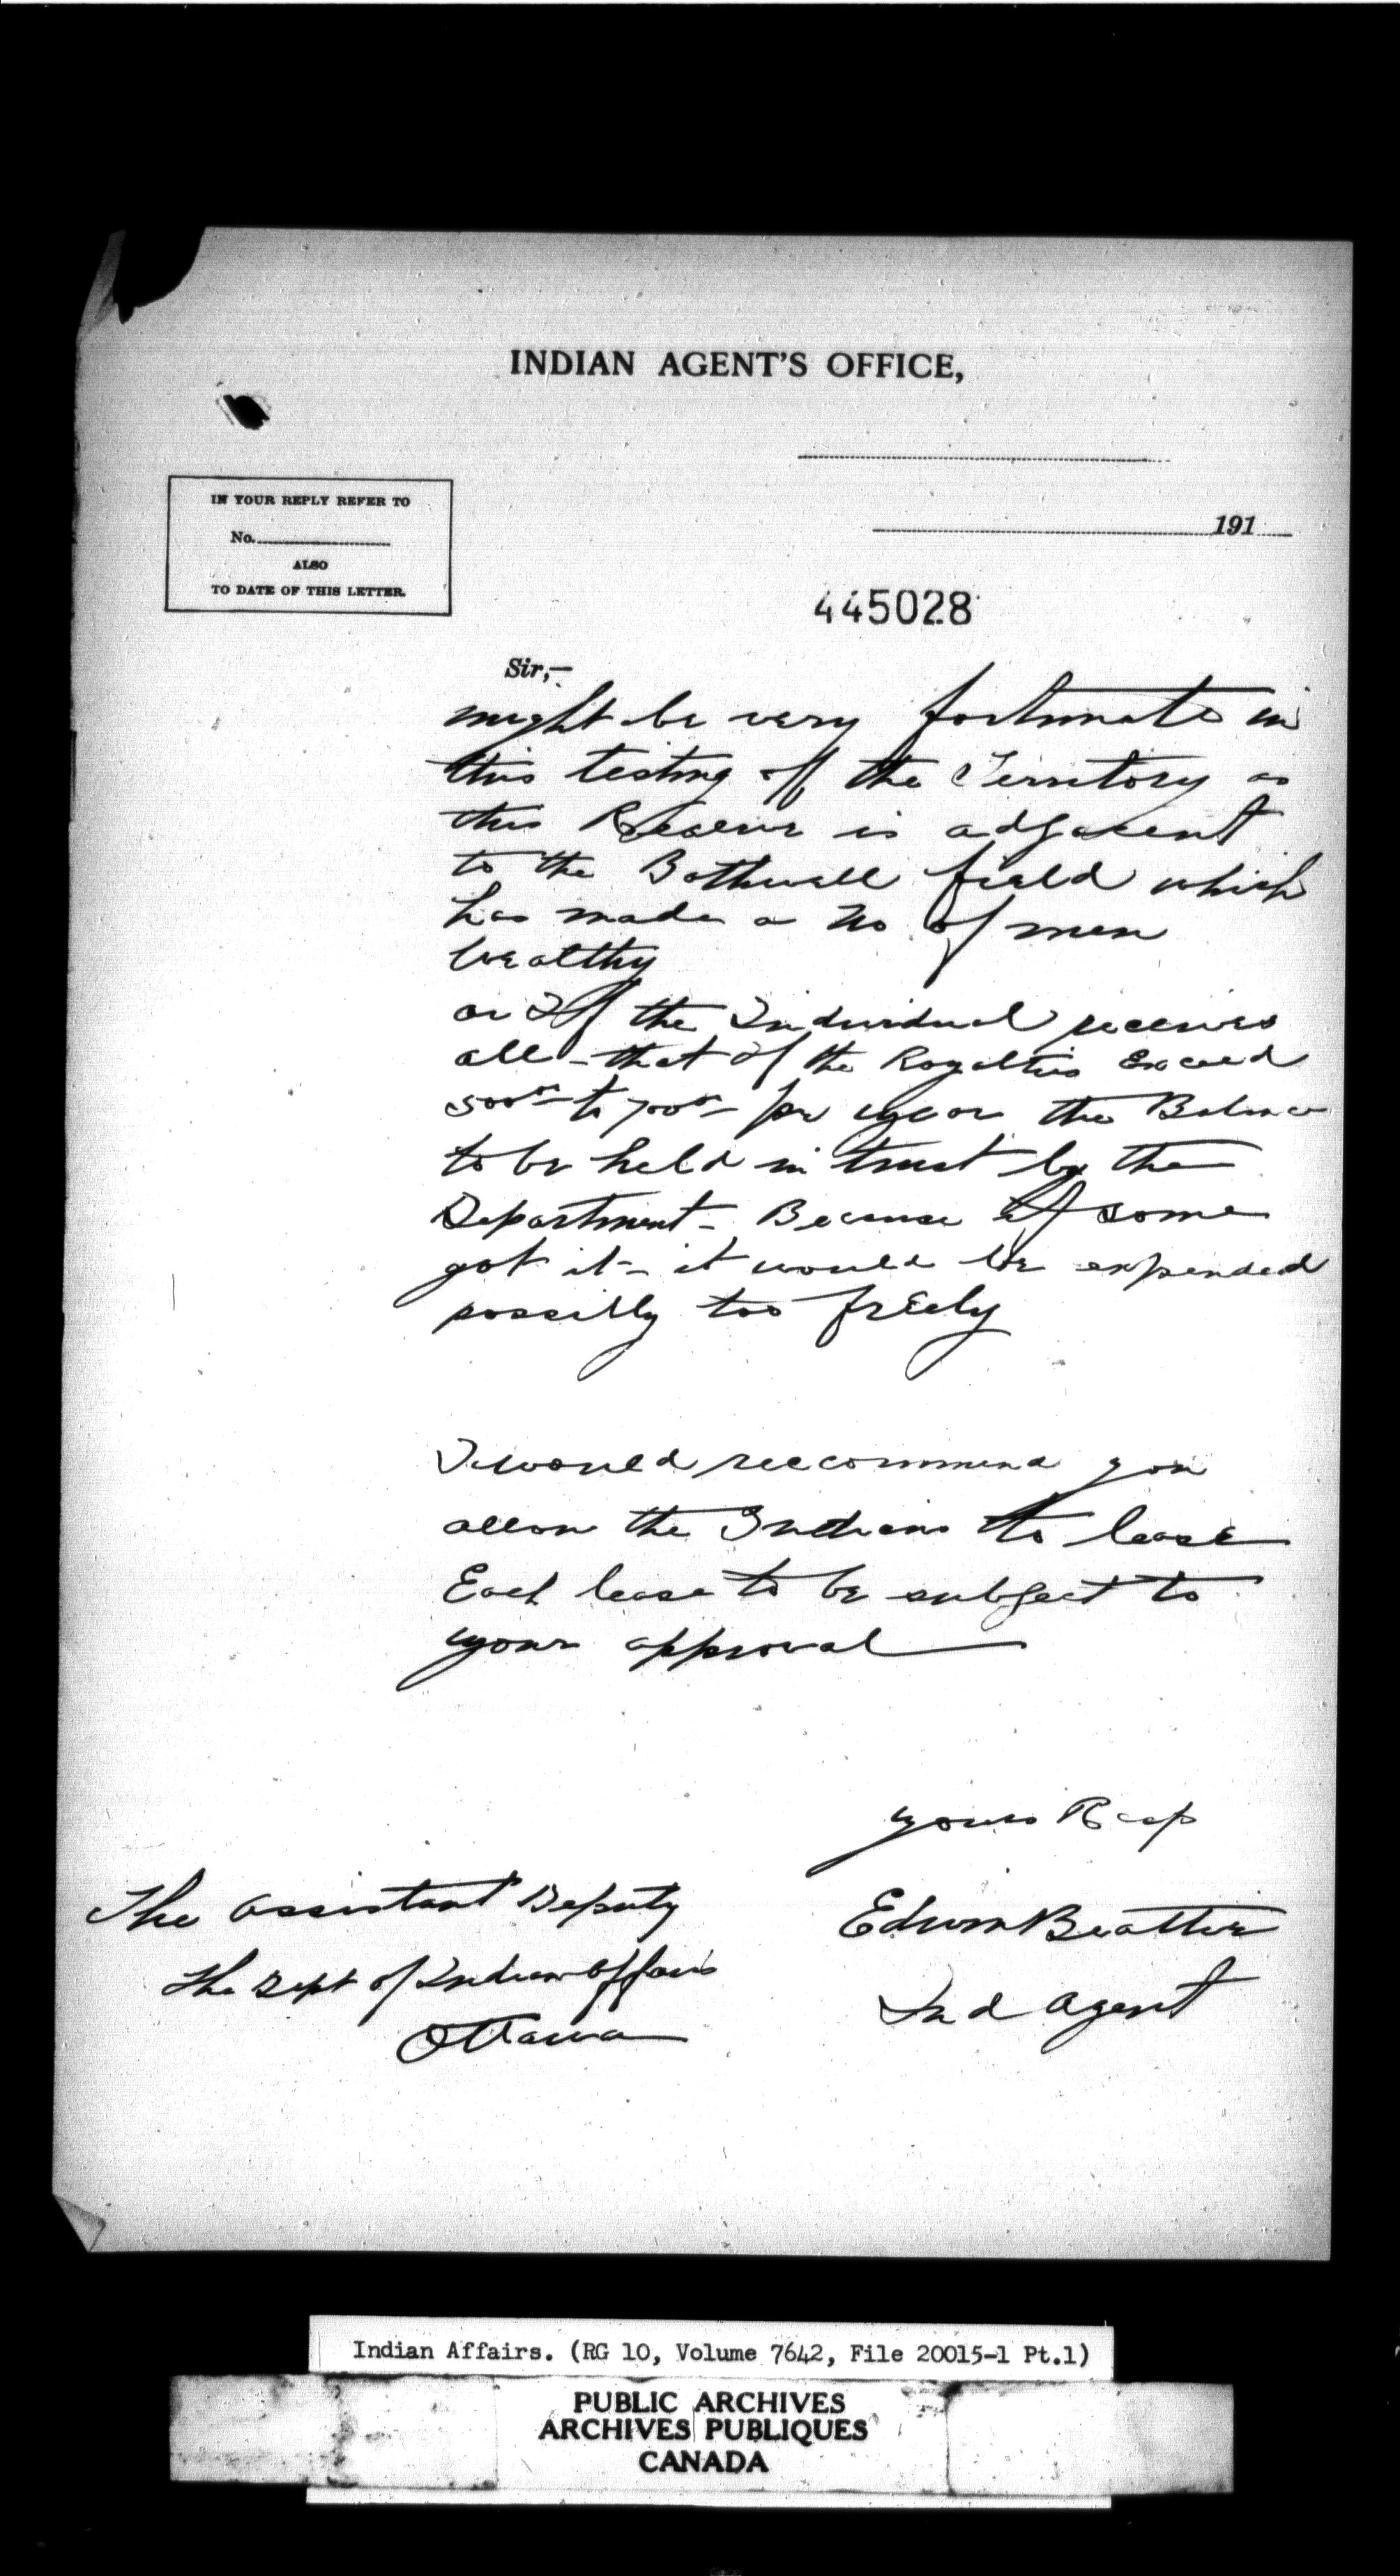 INDIAN AGENT'S OFFICE,
IN YOUR REPLY REFER TO
No.
ALSO
TO DATE OF THIS LETTER.
191
445028
Sir,—
might be very fortunate in
this testing of the Territory as
this Reserve is adjacent
to the Bothwell field which
has made a No of men
wealthy
or If the Individual receives
all - that if the Royalties Exceed
500⁰⁰ to 700⁰⁰ per year the Balance
to be held in trust by the
Department - Because if some
got it - it would be expended
possibly too frEely
I would reccommend you
allow the Indians to lease
Each lease to be subject to
your approval
yours Resp
Edwin Beattie
Ind Agent
The Assistant Deputy
The Dept of Indian Affairs
Ottawa
Indian Affairs. (RG 10, Volume 7642, File 20015-1 Pt.1)
PUBLIC ARCHIVES
ARCHIVES PUBLIQUES
CANADA